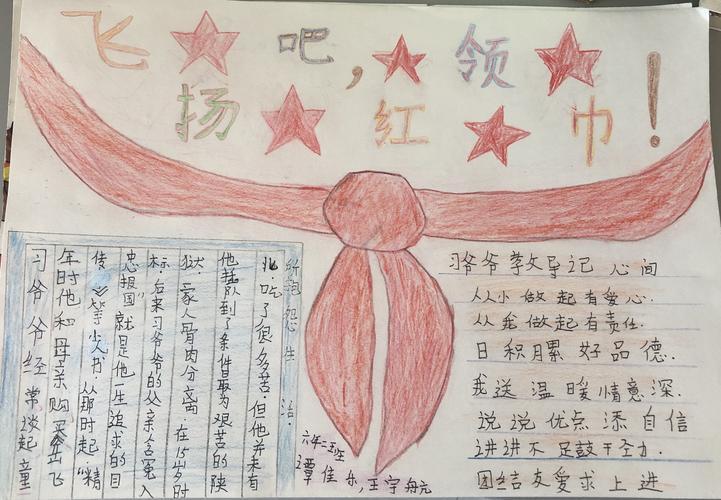 飞扬吧，红领巾！
习爷爷经常谈起童
年时他和母亲购买岳飞
传等小人书从那时起"精
忠报国"就是他一生追求的目
标.后来习爷爷的父亲含冤入
狱.家人骨肉分离.在15岁时
他插队到了条件最为艰苦的陕
北.吃了很多苦.但他并未有
所抱怨生活.
习爷爷教导记心间
从小做起有爱心.
从我做起有责任.
日积月累好品德.
我送温暖情意深.
说说优点添自信
讲讲不足鼓干劲力.
团结友爱求上进
六年二班
谭佳乐,王宇航